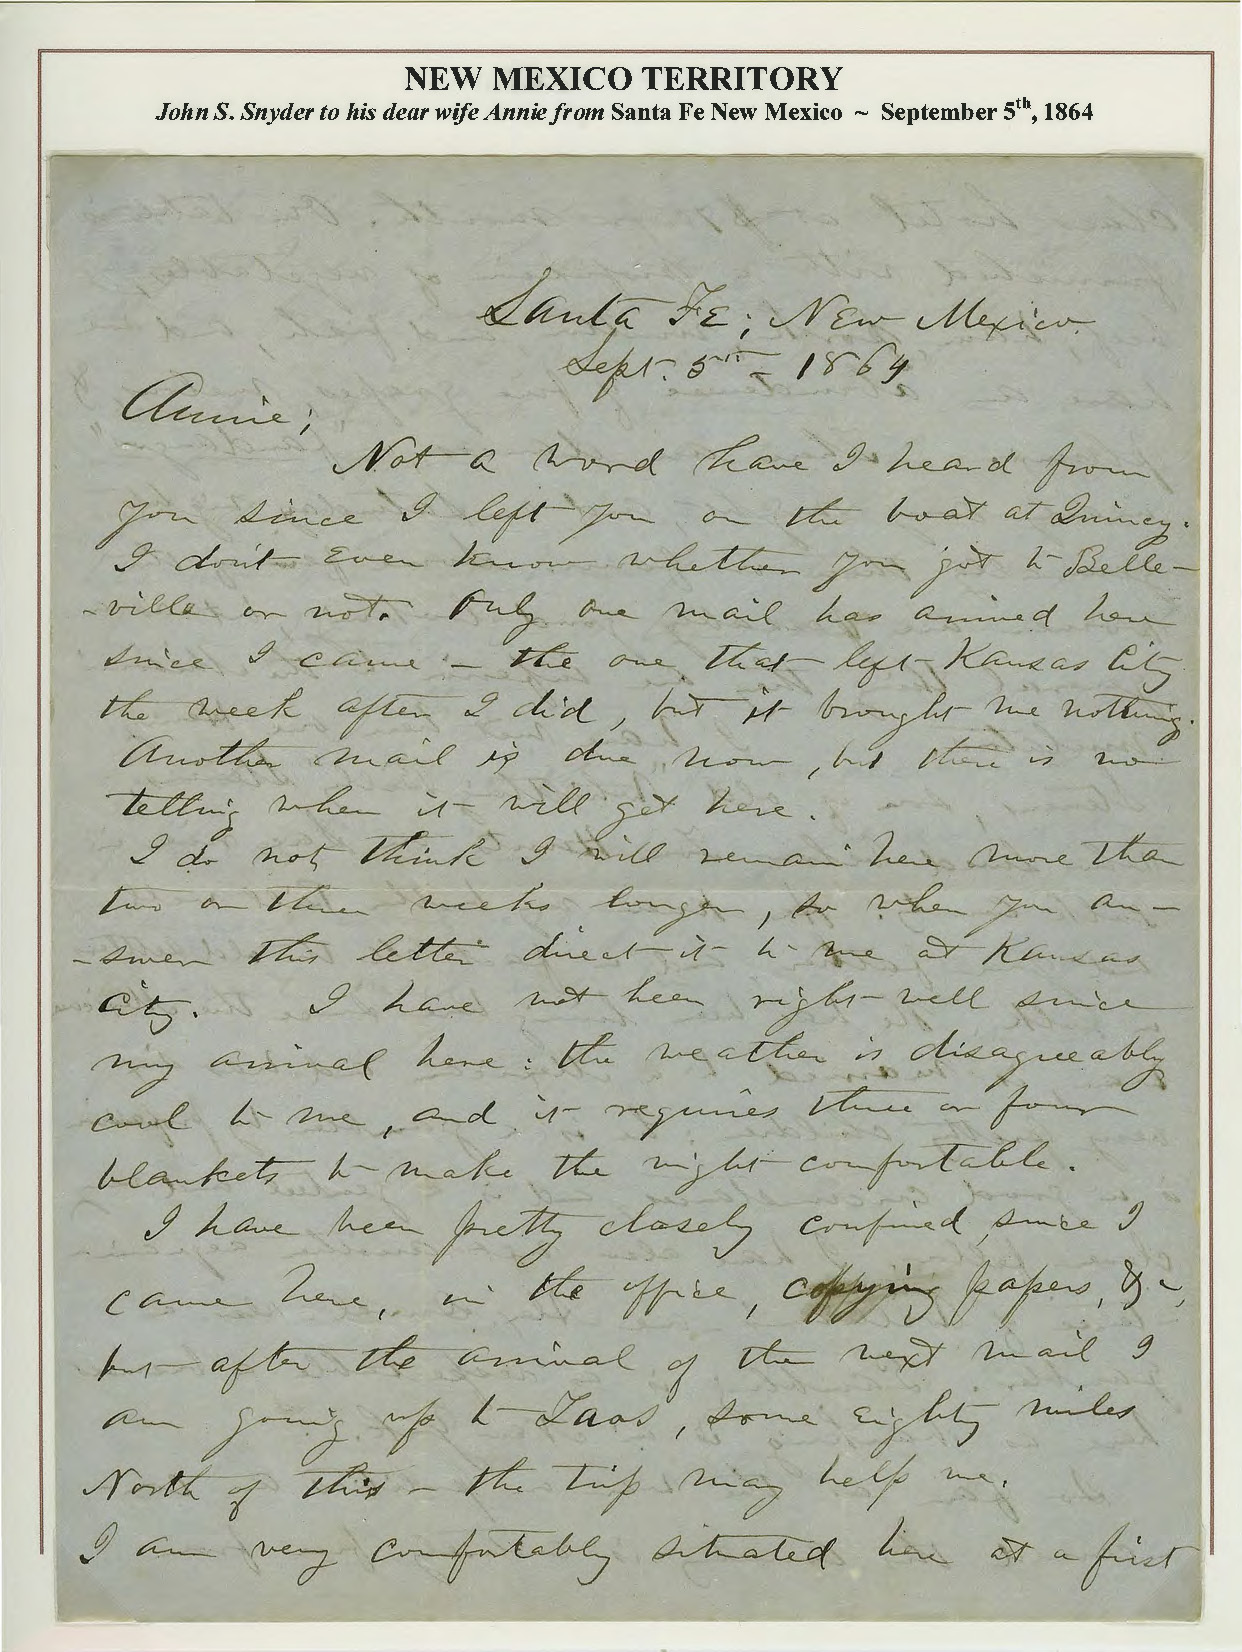 NEW MEXICO TERRITORY
John S. Snyder to his dear wife Annie from Santa Fe New Mexico ~ September 5th, 1864
Santa Fe; New Mexico.
Sept. 5th - 1864
Annie;
Not a word have I heard from
you since I left you on the boat at Quincy.
I don't even know whether you got to Belle-
-ville or not. Only one mail has arrived here
since I came - the one that left Kansas City
the week after I did, but it brought me nothing.
Another mail is due now, but there is no
telling when it will get here.
I do not think I will remain here more than
two or three weeks longer, so when you an-
-swer this letter direct it to me at Kansas
City. I have not been right well since
my arrival here: the weather is disagreeably
cool to me, and it requires three or four
blankets to make the night comfortable.
I have been pretty closely confined since I
came here, in the office, copying papers, &c,
but after the arrival of the next mail I
am going up to Taos, some eighty miles
North of this - the trip may help me.
I am very comfortably situated here at a first